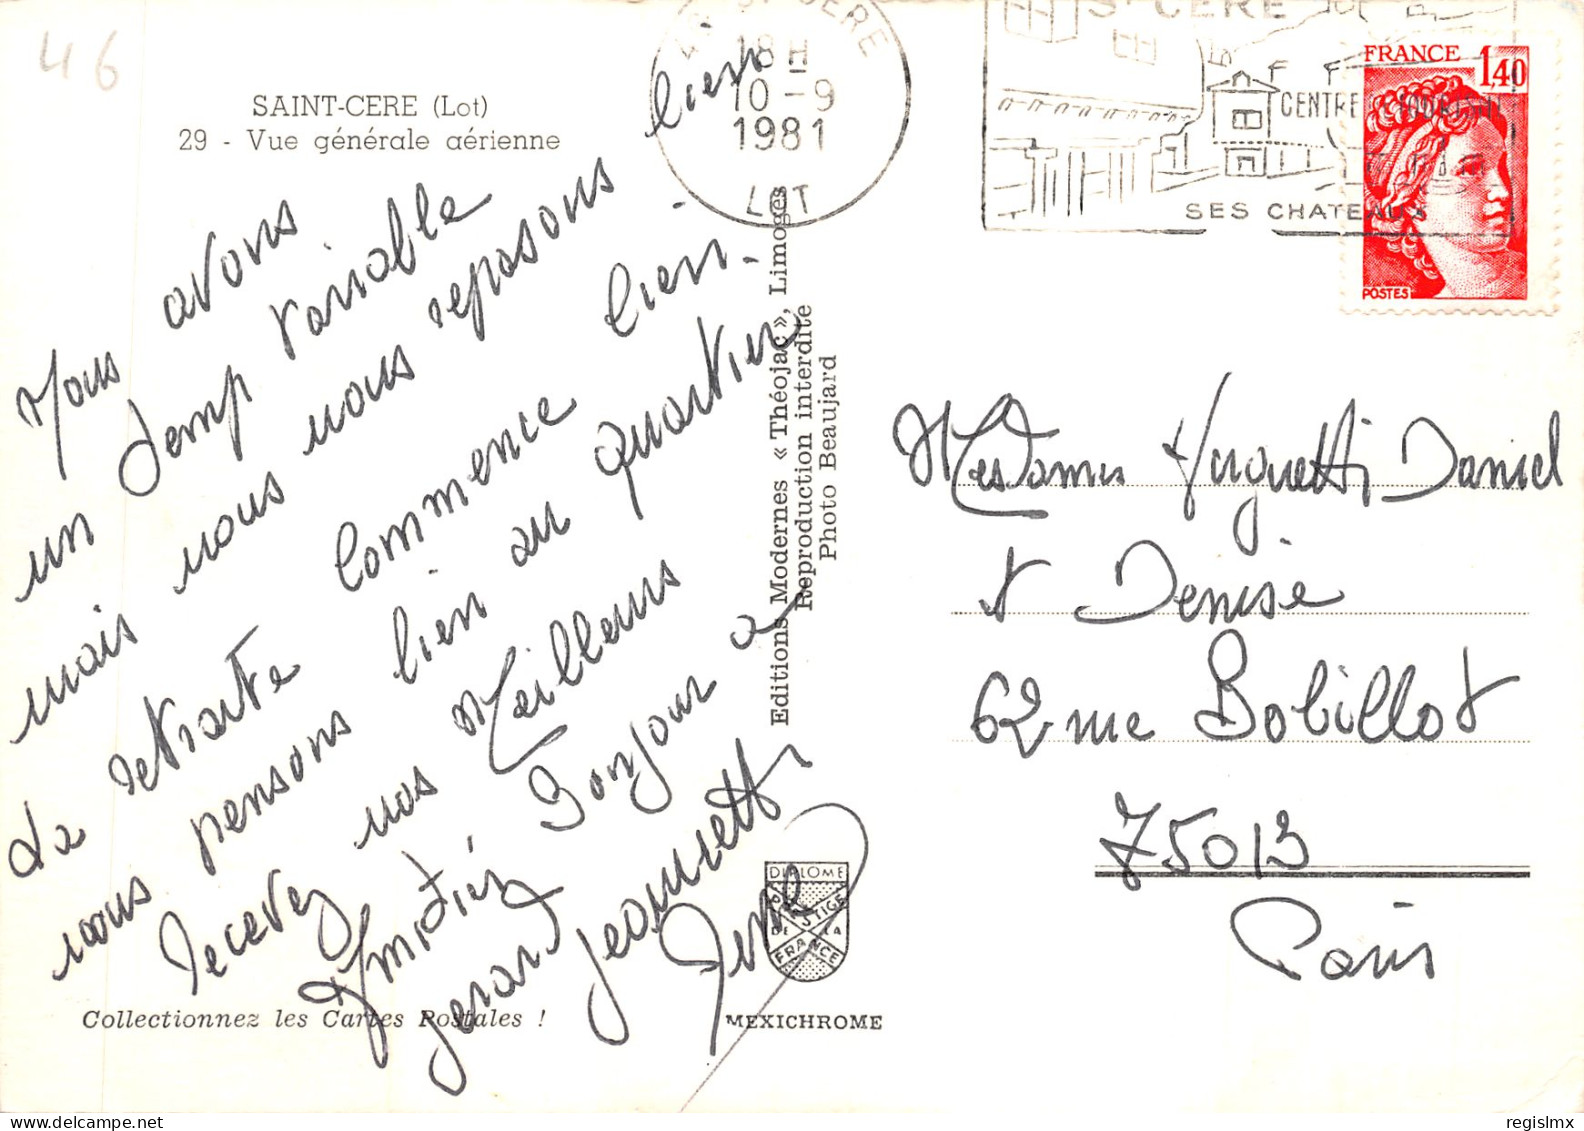 46
SAINT-CERE (Lot)
29 - Vue générale aérienne
Nous avons
un temp variable
mais nous nous reposons bien
La retraite commence bien.
nous pensons bien au quartier
recevez nos Meilleurs
Amitiés Bonjour a
gerard Jeannette
46 ST CERE
18 H
10 - 9
1981
LOT
ST CERE
CENTRE TOURISME
SES CHATEAUX
FRANCE 1,40
POSTES
Editions Modernes « Théojac », Limoges
Reproduction interdite
Photo Beaujard
Mesdames Huguette Daniel
et Denise
62 rue Bobillot
75013
Paris
DIPLOME
PRESTIGE
DE LA
FRANCE
Collectionnez les Cartes Postales !
MEXICHROME
regislmx